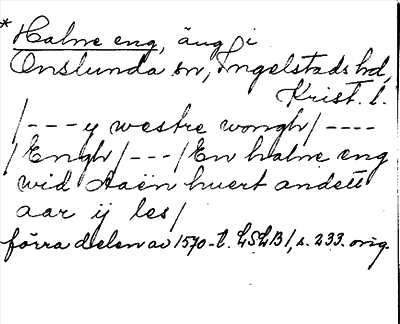 * Halne eng, äng i
Onslunda sn, Ingelstads hd,
Krist. l.
/---y westre wongh/----
/Engh/---/En halne eng
wid Aaën huert andett
aar ij les/
förra delen av 1570-t. LSLB 1, s. 233. orig.